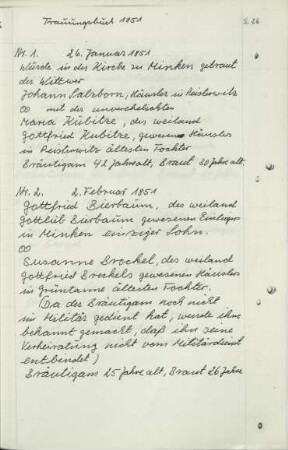 Trauungsbuch 1851 S. 26
Nr. 1. 26. Januar 1851
Wurde in der Kirche zu Minken getraut
der Wittwer
Johann Salzborn, Häusler in Peisterwitz
∞ mit der unverehelichten
Maria Kubitze, des weiland
Gottfried Kubitze, gewesenen Häuslers
in Peisterwitz ältesten Tochter
Bräutigam 42 Jahr alt, Braut 30 Jahre alt.
Nr. 2. 2. Februar 1851
Gottfried Bierbaum, des weiland
Gottlieb Bierbaum gewesenen Einliegers
in Minken einziger Sohn.
∞
Susanne Brockel, des weiland
Gottfried Brockels gewesenen Häuslers
in Grüntanne ältesten Tochter.
(Da der Bräutigam noch nicht
im Militär gedient hat, wurde ihm
bekannt gemacht, daß ihn seine
Verheiratung nicht vom Militärdienst
entbindet)
Bräutigam 25 Jahre alt, Braut 26 Jahre